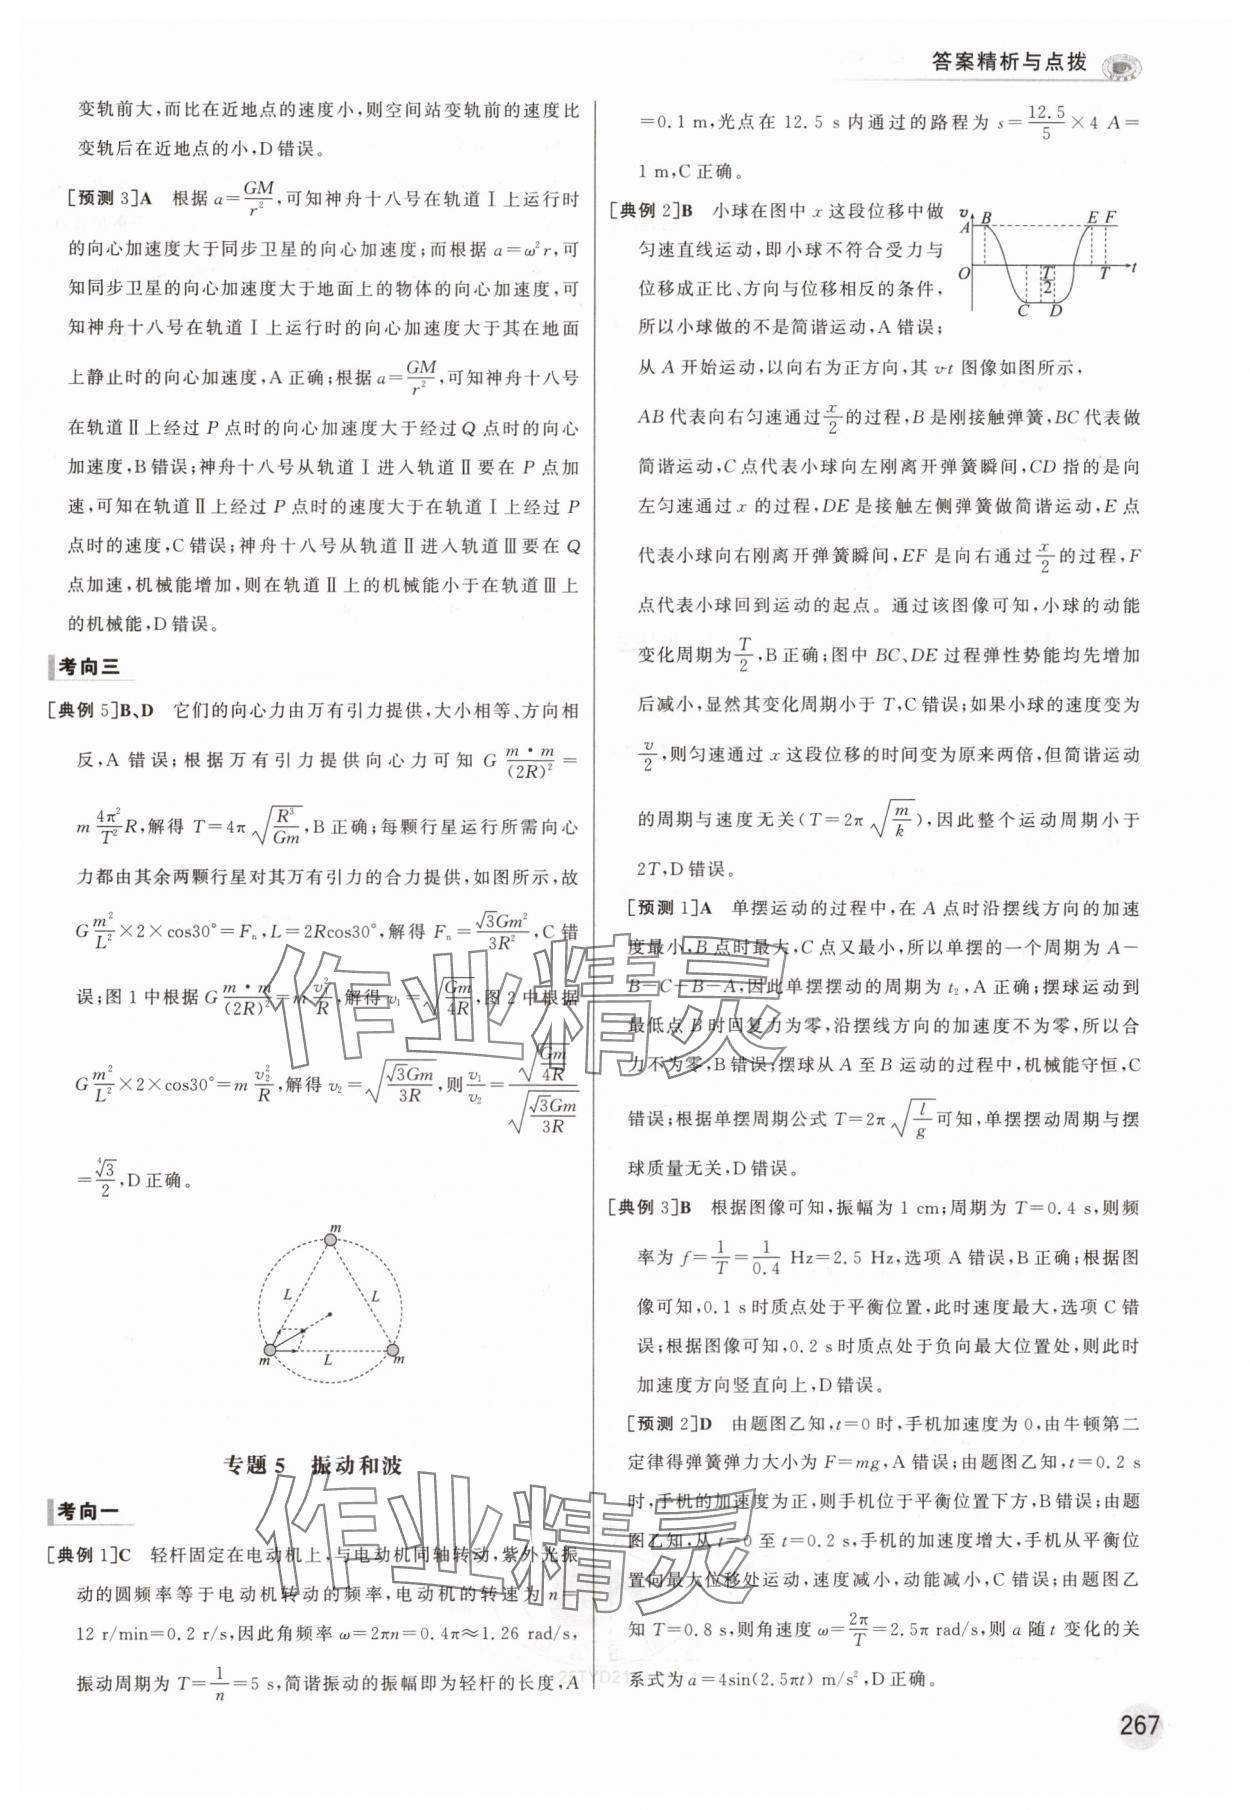 答案精析与点拨
变轨前大,而比在近地点的速度小,则空间站变轨前的速度比
变轨后在近地点的小,D错误。
[预测3]A 根据 a=GM/r²,可知神舟十八号在轨道Ⅰ上运行时
的向心加速度大于同步卫星的向心加速度;而根据 a=ω²r,可
知同步卫星的向心加速度大于地面上的物体的向心加速度,可
知神舟十八号在轨道Ⅰ上运行时的向心加速度大于其在地面
上静止时的向心加速度,A正确;根据 a=GM/r²,可知神舟十八号
在轨道Ⅱ上经过 P 点时的向心加速度大于经过 Q 点时的向心
加速度,B错误;神舟十八号从轨道Ⅰ进入轨道Ⅱ要在 P 点加
速,可知在轨道Ⅱ上经过 P 点时的速度大于在轨道Ⅰ上经过 P
点时的速度,C错误;神舟十八号从轨道Ⅱ进入轨道Ⅲ要在 Q
点加速,机械能增加,则在轨道Ⅱ上的机械能小于在轨道Ⅲ上
的机械能,D错误。
考向三
[典例5]B、D 它们的向心力由万有引力提供,大小相等、方向相
反,A 错误;根据万有引力提供向心力可知 G m·m/(2R)²=
m 4π²/T² R,解得 T=4π√(R³/Gm),B正确;每颗行星运行所需向心
力都由其余两颗行星对其万有引力的合力提供,如图所示,故
G m²/L²×2×cos30°=Fₙ,L=2Rcos30°,解得 Fₙ=√3Gm²/3R²,C错
误;图1中根据 G m·m/(2R)²=m v₁²/R,解得 v₁=√(Gm/4R),图2中根据
G m²/L²×2×cos30°=m v₂²/R,解得 v₂=√(√3Gm/3R),则 v₁/v₂=√(Gm/4R)/√(√3Gm/3R)
=∜3/2,D正确。
m
L
L
m
L
m
专题5 振动和波
考向一
[典例1]C 轻杆固定在电动机上,与电动机同轴转动,紫外光振
动的圆频率等于电动机转动的频率,电动机的转速为 n=
12 r/min=0.2 r/s,因此角频率 ω=2πn=0.4π≈1.26 rad/s,
振动周期为 T=1/n=5 s,简谐振动的振幅即为轻杆的长度,A
=0.1 m,光点在 12.5 s 内通过的路程为 s=12.5/5×4 A=
1 m,C正确。
[典例2]B 小球在图中 x 这段位移中做
匀速直线运动,即小球不符合受力与
位移成正比、方向与位移相反的条件,
所以小球做的不是简谐运动,A错误;
v
A
B
E F
O
T/2
T
t
C
D
从 A 开始运动,以向右为正方向,其 v-t 图像如图所示,
AB代表向右匀速通过 x/2 的过程,B是刚接触弹簧,BC代表做
简谐运动,C点代表小球向左刚离开弹簧瞬间,CD 指的是向
左匀速通过 x 的过程,DE是接触左侧弹簧做简谐运动,E 点
代表小球向右刚离开弹簧瞬间,EF 是向右通过 x/2 的过程,F
点代表小球回到运动的起点。通过该图像可知,小球的动能
变化周期为 T/2,B正确;图中 BC、DE 过程弹性势能均先增加
后减小,显然其变化周期小于 T,C错误;如果小球的速度变为
v/2,则匀速通过 x 这段位移的时间变为原来两倍,但简谐运动
的周期与速度无关(T=2π√(m/k)),因此整个运动周期小于
2T,D错误。
[预测1]A 单摆运动的过程中,在 A 点时沿摆线方向的加速
度最小,B点时最大,C点又最小,所以单摆的一个周期为 A—
B—C—B—A,因此单摆摆动的周期为 t₂,A正确;摆球运动到
最低点 B时回复力为零,沿摆线方向的加速度不为零,所以合
力不为零,B错误;摆球从 A 至 B 运动的过程中,机械能守恒,C
错误;根据单摆周期公式 T=2π√(l/g)可知,单摆摆动周期与摆
球质量无关,D错误。
[典例3]B 根据图像可知,振幅为 1 cm;周期为 T=0.4 s,则频
率为 f=1/T=1/0.4 Hz=2.5 Hz,选项 A错误,B正确;根据图
像可知,0.1 s时质点处于平衡位置,此时速度最大,选项 C错
误;根据图像可知,0.2 s时质点处于负向最大位置处,则此时
加速度方向竖直向上,D错误。
[预测2]D 由题图乙知,t=0时,手机加速度为0,由牛顿第二
定律得弹簧弹力大小为 F=mg,A错误;由题图乙知,t=0.2 s
时,手机的加速度为正,则手机位于平衡位置下方,B错误;由题
图乙知,从 t=0 至 t=0.2 s,手机的加速度增大,手机从平衡位
置向最大位移处运动,速度减小,动能减小,C错误;由题图乙
知 T=0.8 s,则角速度 ω=2π/T=2.5π rad/s,则 a 随 t 变化的关
系式为 a=4sin(2.5πt) m/s²,D正确。
作业精灵
作业精灵
267